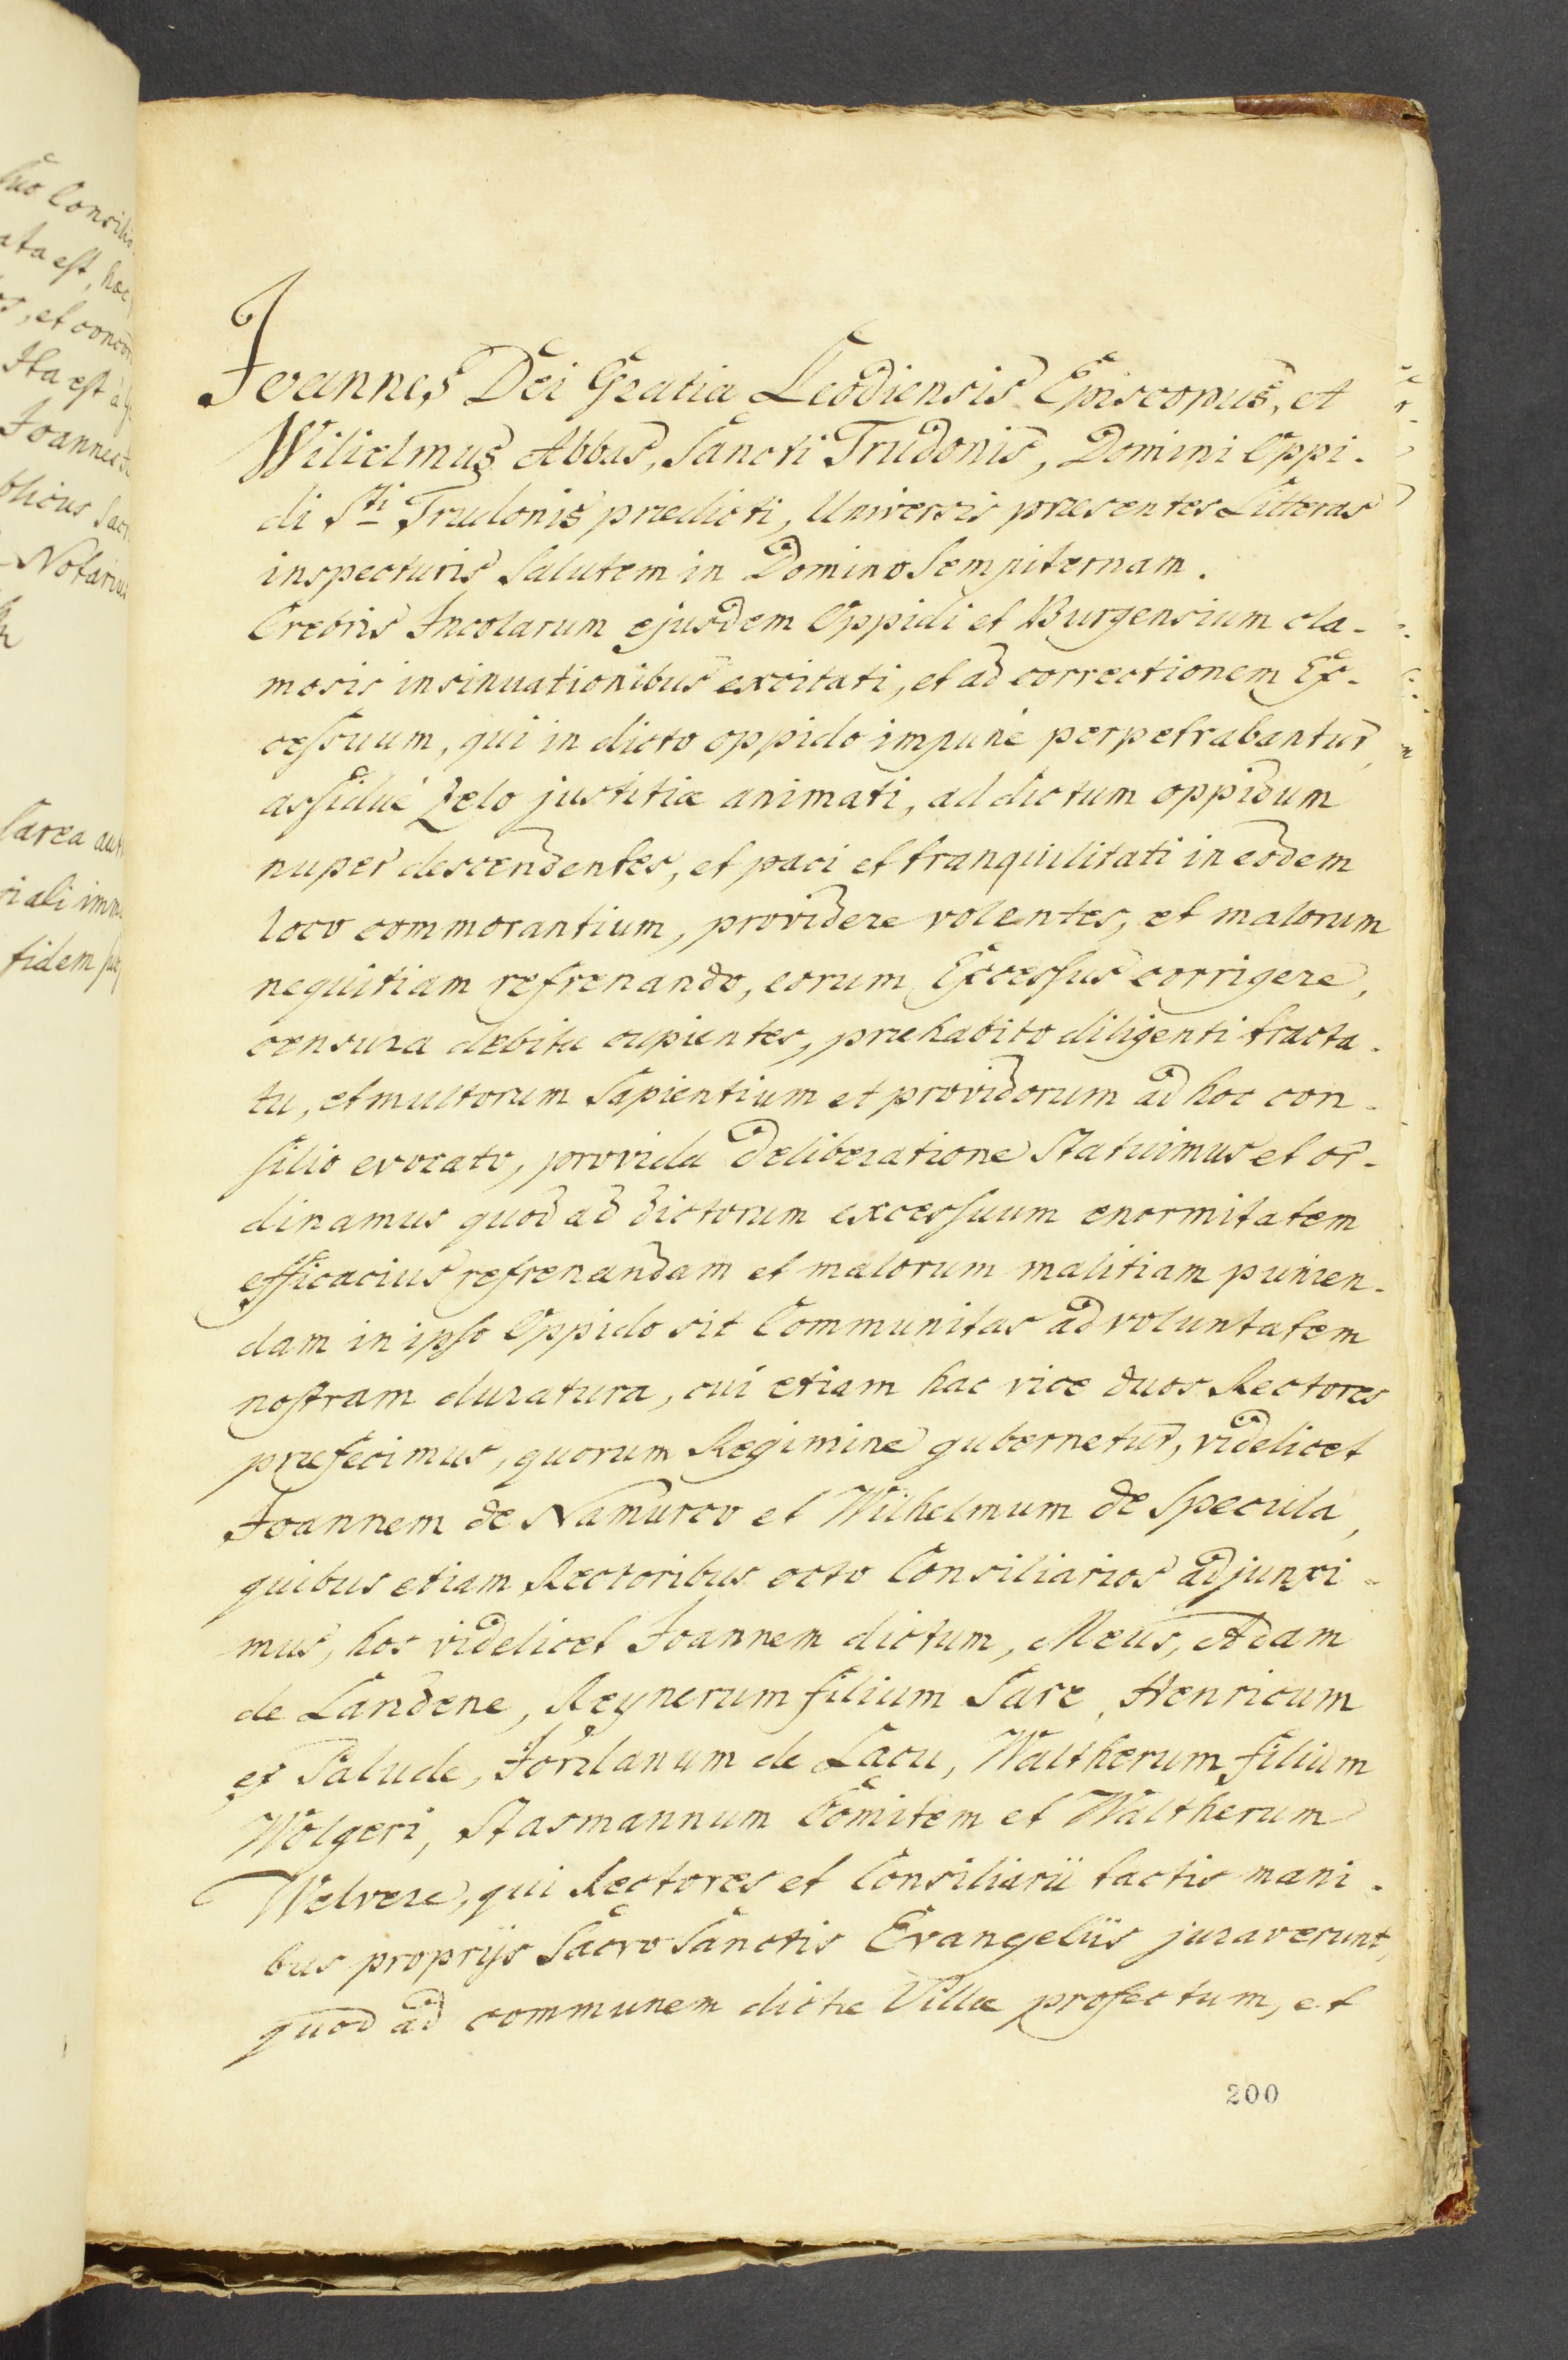 suo Consilio
ata est, hoc
os, et concor
Ita est
Joannes
blicus Sac
Notarius
Carea
tidem
Joannes Dei Gratia Leodiensis Episcopus, et
Wilielmus Abbas, Sancti Trudonis, Domini Oppi-
di Sti Trudonis prædicti, Universis præsentes Litteras
inspecturis Salutem in Domino Sempiternam.
Crebris Incolarum ejusdem Oppidi et Burgensium cla-
mosis insinuationibus excitati, et ad correctionem Ex-
cessuum, qui in dicto oppido impunè perpetrabantur,
assiduè Zelo justitiæ animati, ad dictum oppidum
nuper descendentes, et paci et tranquilitati in eodem
loco commorantium, providere volentes, et malorum
nequitiam refrenando, eorum Excessus corrigere,
censura debita cupientes, præhabito diligenti tracta-
tu, et multorum Sapientium et providorum ad hoc con-
silio evocato, provida deliberatione Statuimus et or-
dinamus quod ad dictorum excessuum enormitatem
efficacius refrenandam et malorum malitiam punien-
dam in ipso Oppido sit Communitas ad voluntatem
nostram duratura, cui etiam hac vice duos Rectores
præfecimus, quorum Regimine gubernetur, videlicet
Joannem de Namurco et Wilhelmum de Specula,
quibus etiam Rectoribus octo Consiliarios adjunxi-
mus, hos videlicet Joannem dictum, Meus, Adam
de Landene, Reynerum filium Sare, Henricum
et Palude, Jordanum de Lacu, Waltherum filium
Wolgeri, Stasmannum Comitem et Waltherum
Welvere, qui Rectores et Consiliarii tactis mani-
bus proprijs Sacro Sanctis Evangeliis juraverunt,
quod ad communem dictæ Villæ profectum, et
200